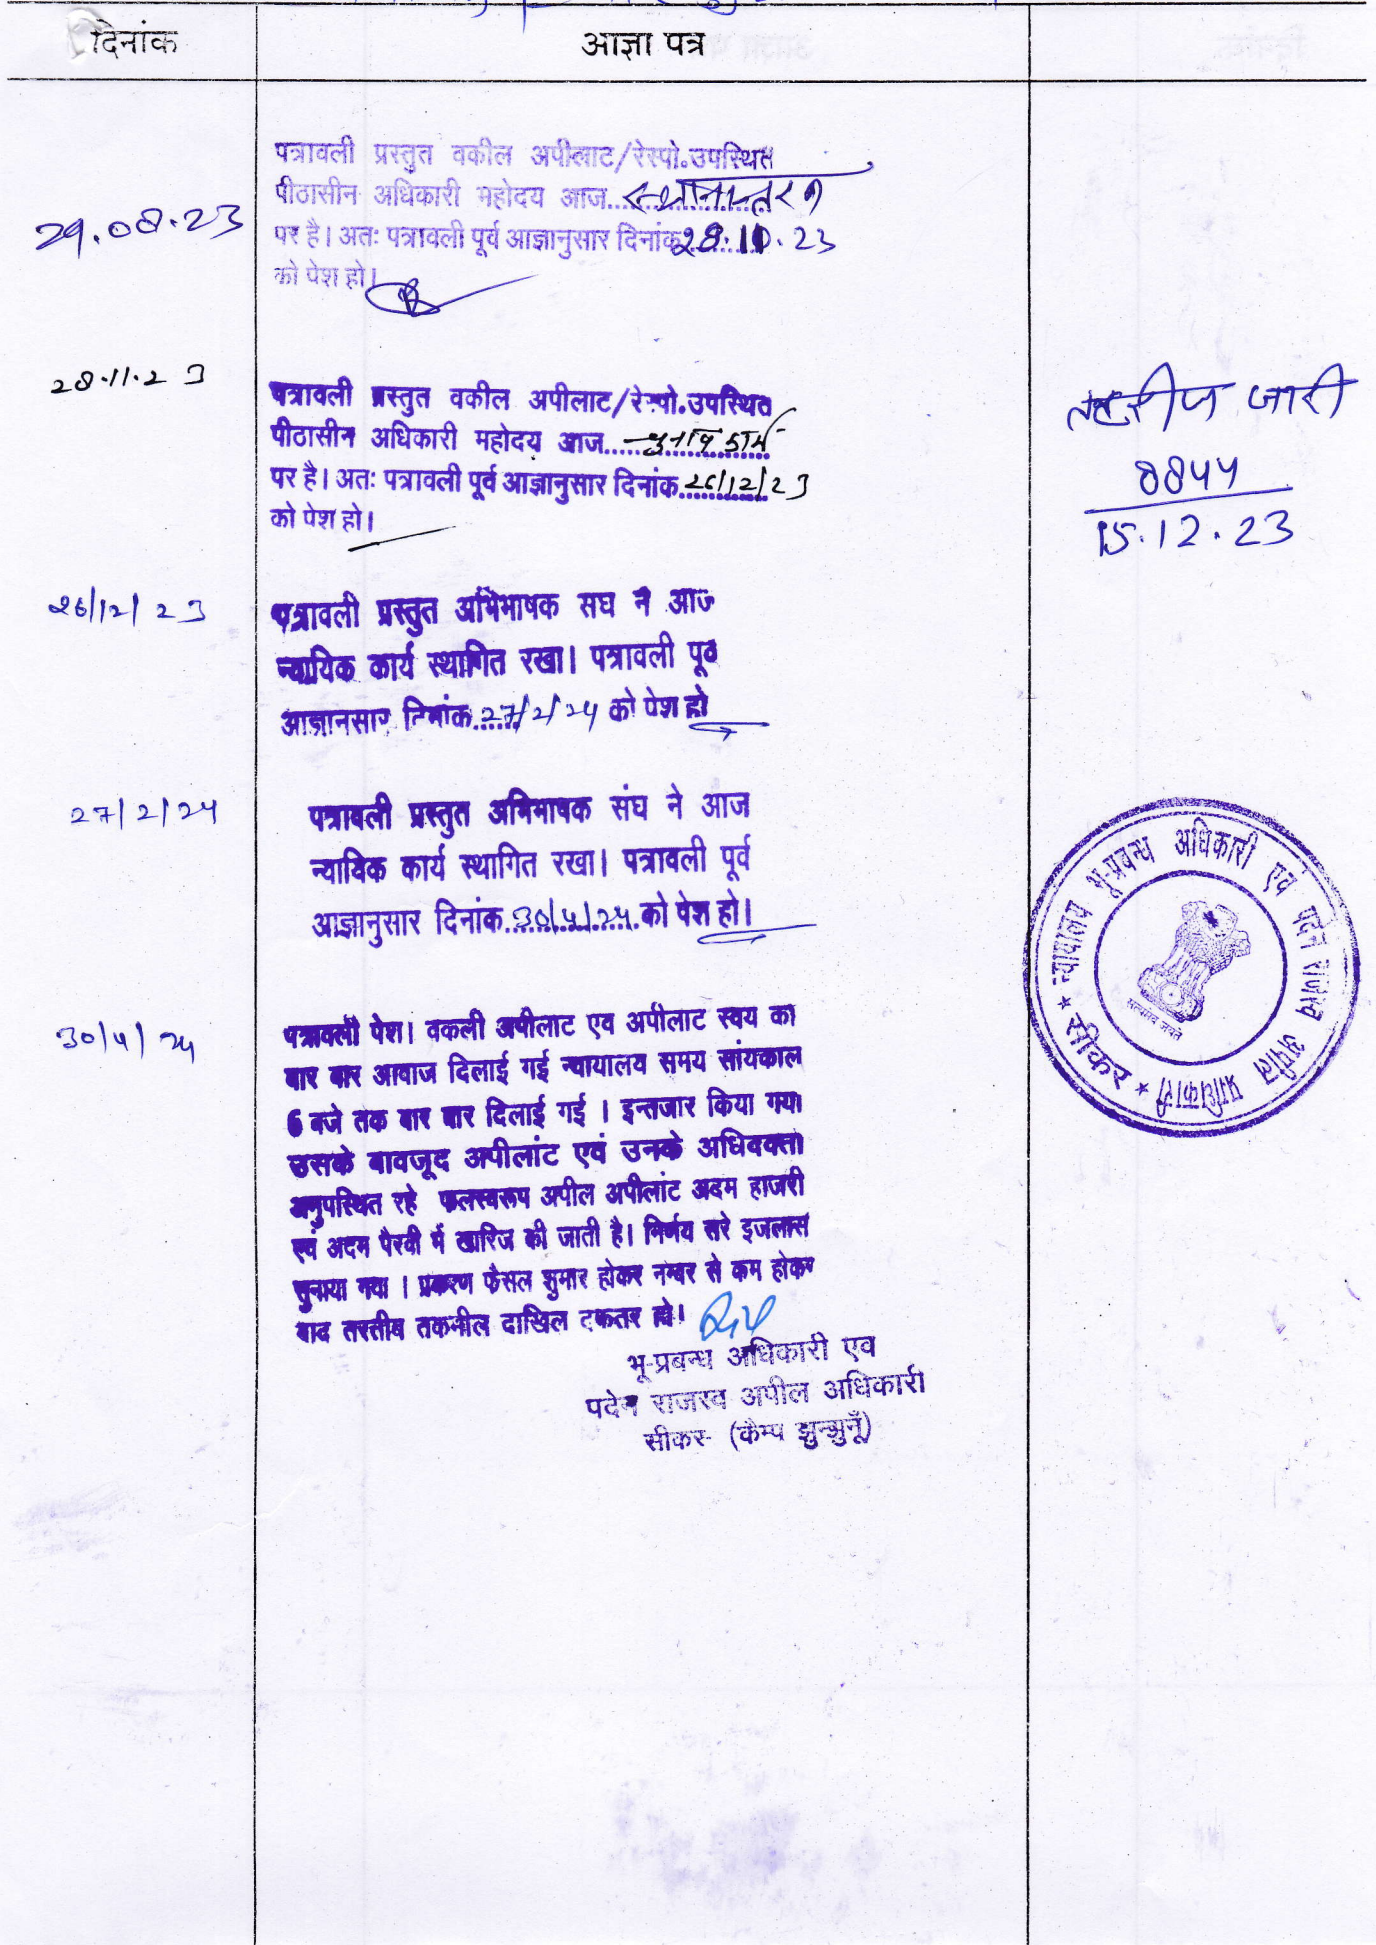 दिनांक
आज्ञा पत्र
29.08.23
पत्रावली प्रस्तुत वकील अपीलाट/रेस्पो.उपस्थित
पीठासीन अधिकारी महोदय आज स्थानान्तरण
पर है। अतः पत्रावली पूर्व आज्ञानुसार दिनांक 28.11.23
को पेश हो।
28.11.23
पत्रावली प्रस्तुत वकील अपीलाट/रेस्पो.उपस्थित
पीठासीन अधिकारी महोदय आज चुनाव कार्य
पर है। अतः पत्रावली पूर्व आज्ञानुसार दिनांक 26/12/23
को पेश हो।
जारी
8844
15.12.23
26/12/23
पत्रावली प्रस्तुत अभिभाषक सघ ने आज
न्यायिक कार्य स्थागित रखा। पत्रावली पूव
आज्ञानसार दिनांक 27/2/24 को पेश हो
27/2/24
पत्रावली प्रस्तुत अभिभाषक संघ ने आज
न्यायिक कार्य स्थागित रखा। पत्रावली पूर्व
आज्ञानुसार दिनांक 30/4/24 को पेश हो।
न्यायालय भू-प्रबन्ध अधिकारी एवं पदेन राजस्व अपील प्राधिकारी
* सीकर *
30/4/24
पत्रावली पेश। वकली अपीलाट एव अपीलाट स्वय का
बार बार आवाज दिलाई गई न्यायालय समय सांयकाल
6 बजे तक बार बार दिलाई गई । इन्तजार किया गया
उसके बावजूद अपीलांट एवं उनके अधिवक्ता
अनुपस्थित रहे फलस्वरूप अपील अपीलांट अदम हाजरी
एवं अदम पैरवी में खारिज की जाती है। निर्णय सरे इजलास
सुनाया गया । प्रकरण फैसल शुमार होकर नम्बर से कम होकर
बाद तरतीब तकमील दाखिल दफतर हो।
भू-प्रबन्ध अधिकारी एव
पदेन राजस्व अपील अधिकारी
सीकर (कैम्प झुन्झुनूँ)